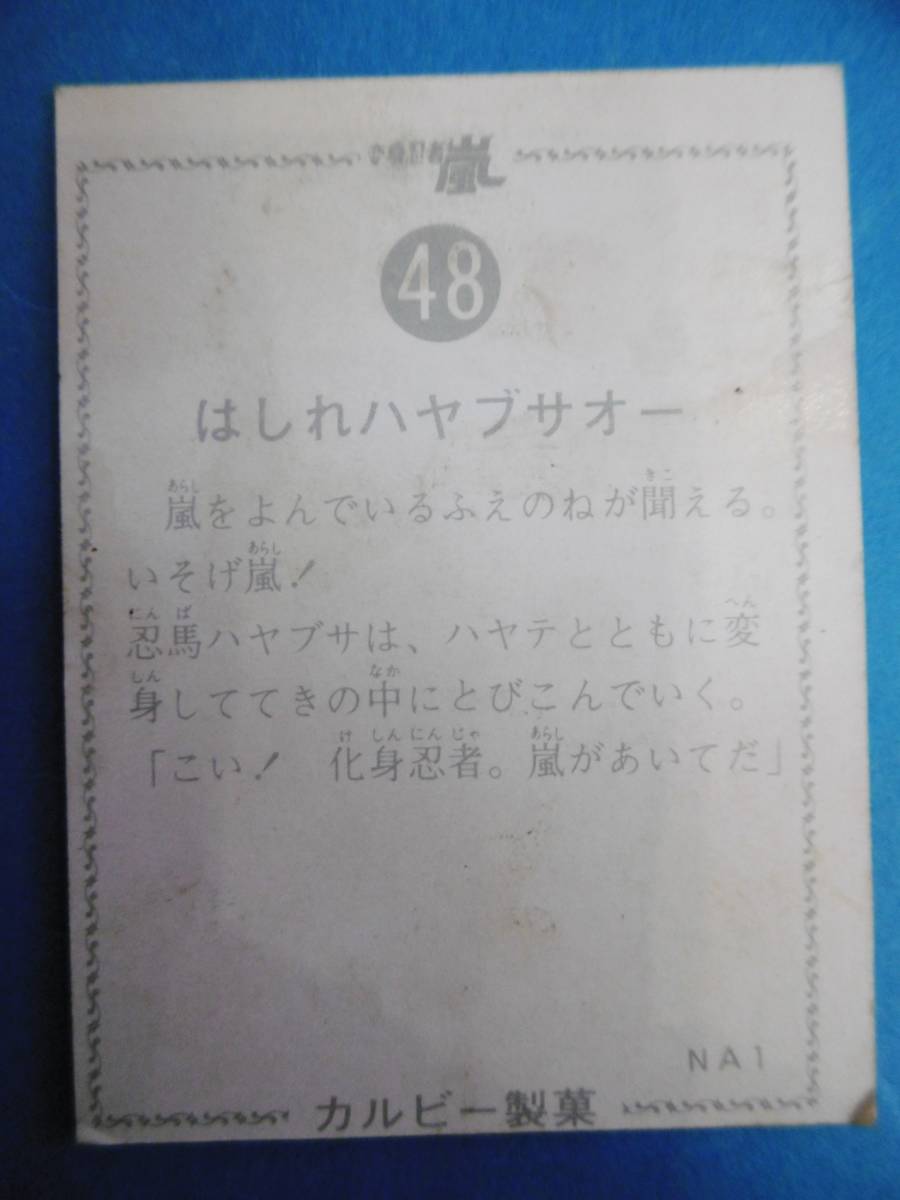 変身忍者嵐
48
はしれハヤブサオー
嵐をよんでいるふえのねが聞える。
いそげ嵐！
忍馬ハヤブサは、ハヤテとともに変
身しててきの中にとびこんでいく。
「こい！　化身忍者。嵐があいてだ」
NA1
カルビー製菓